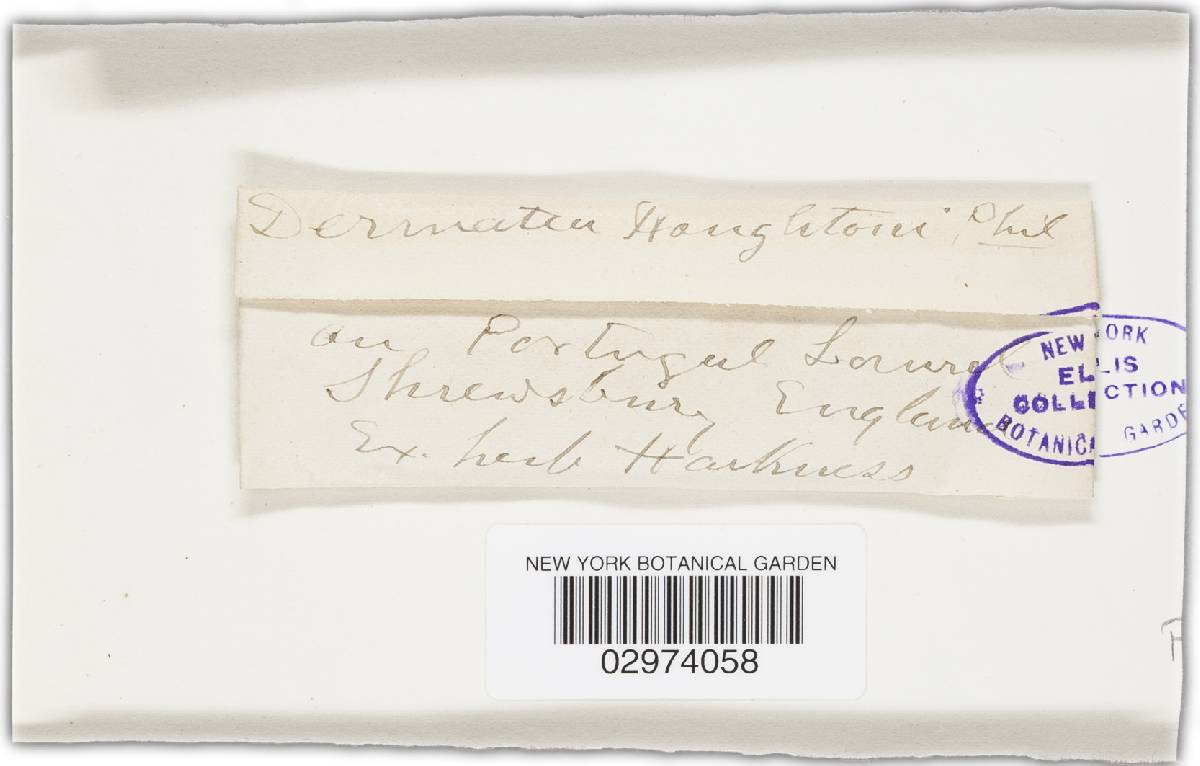 Dermatea Houghtoni, Phil
on Portugul Lourel
Shrewsbury England
Ex. herb Harkness
NEW YORK
ELLIS
COLLECTION
BOTANICAL GARDE
NEW YORK BOTANICAL GARDEN
02974058